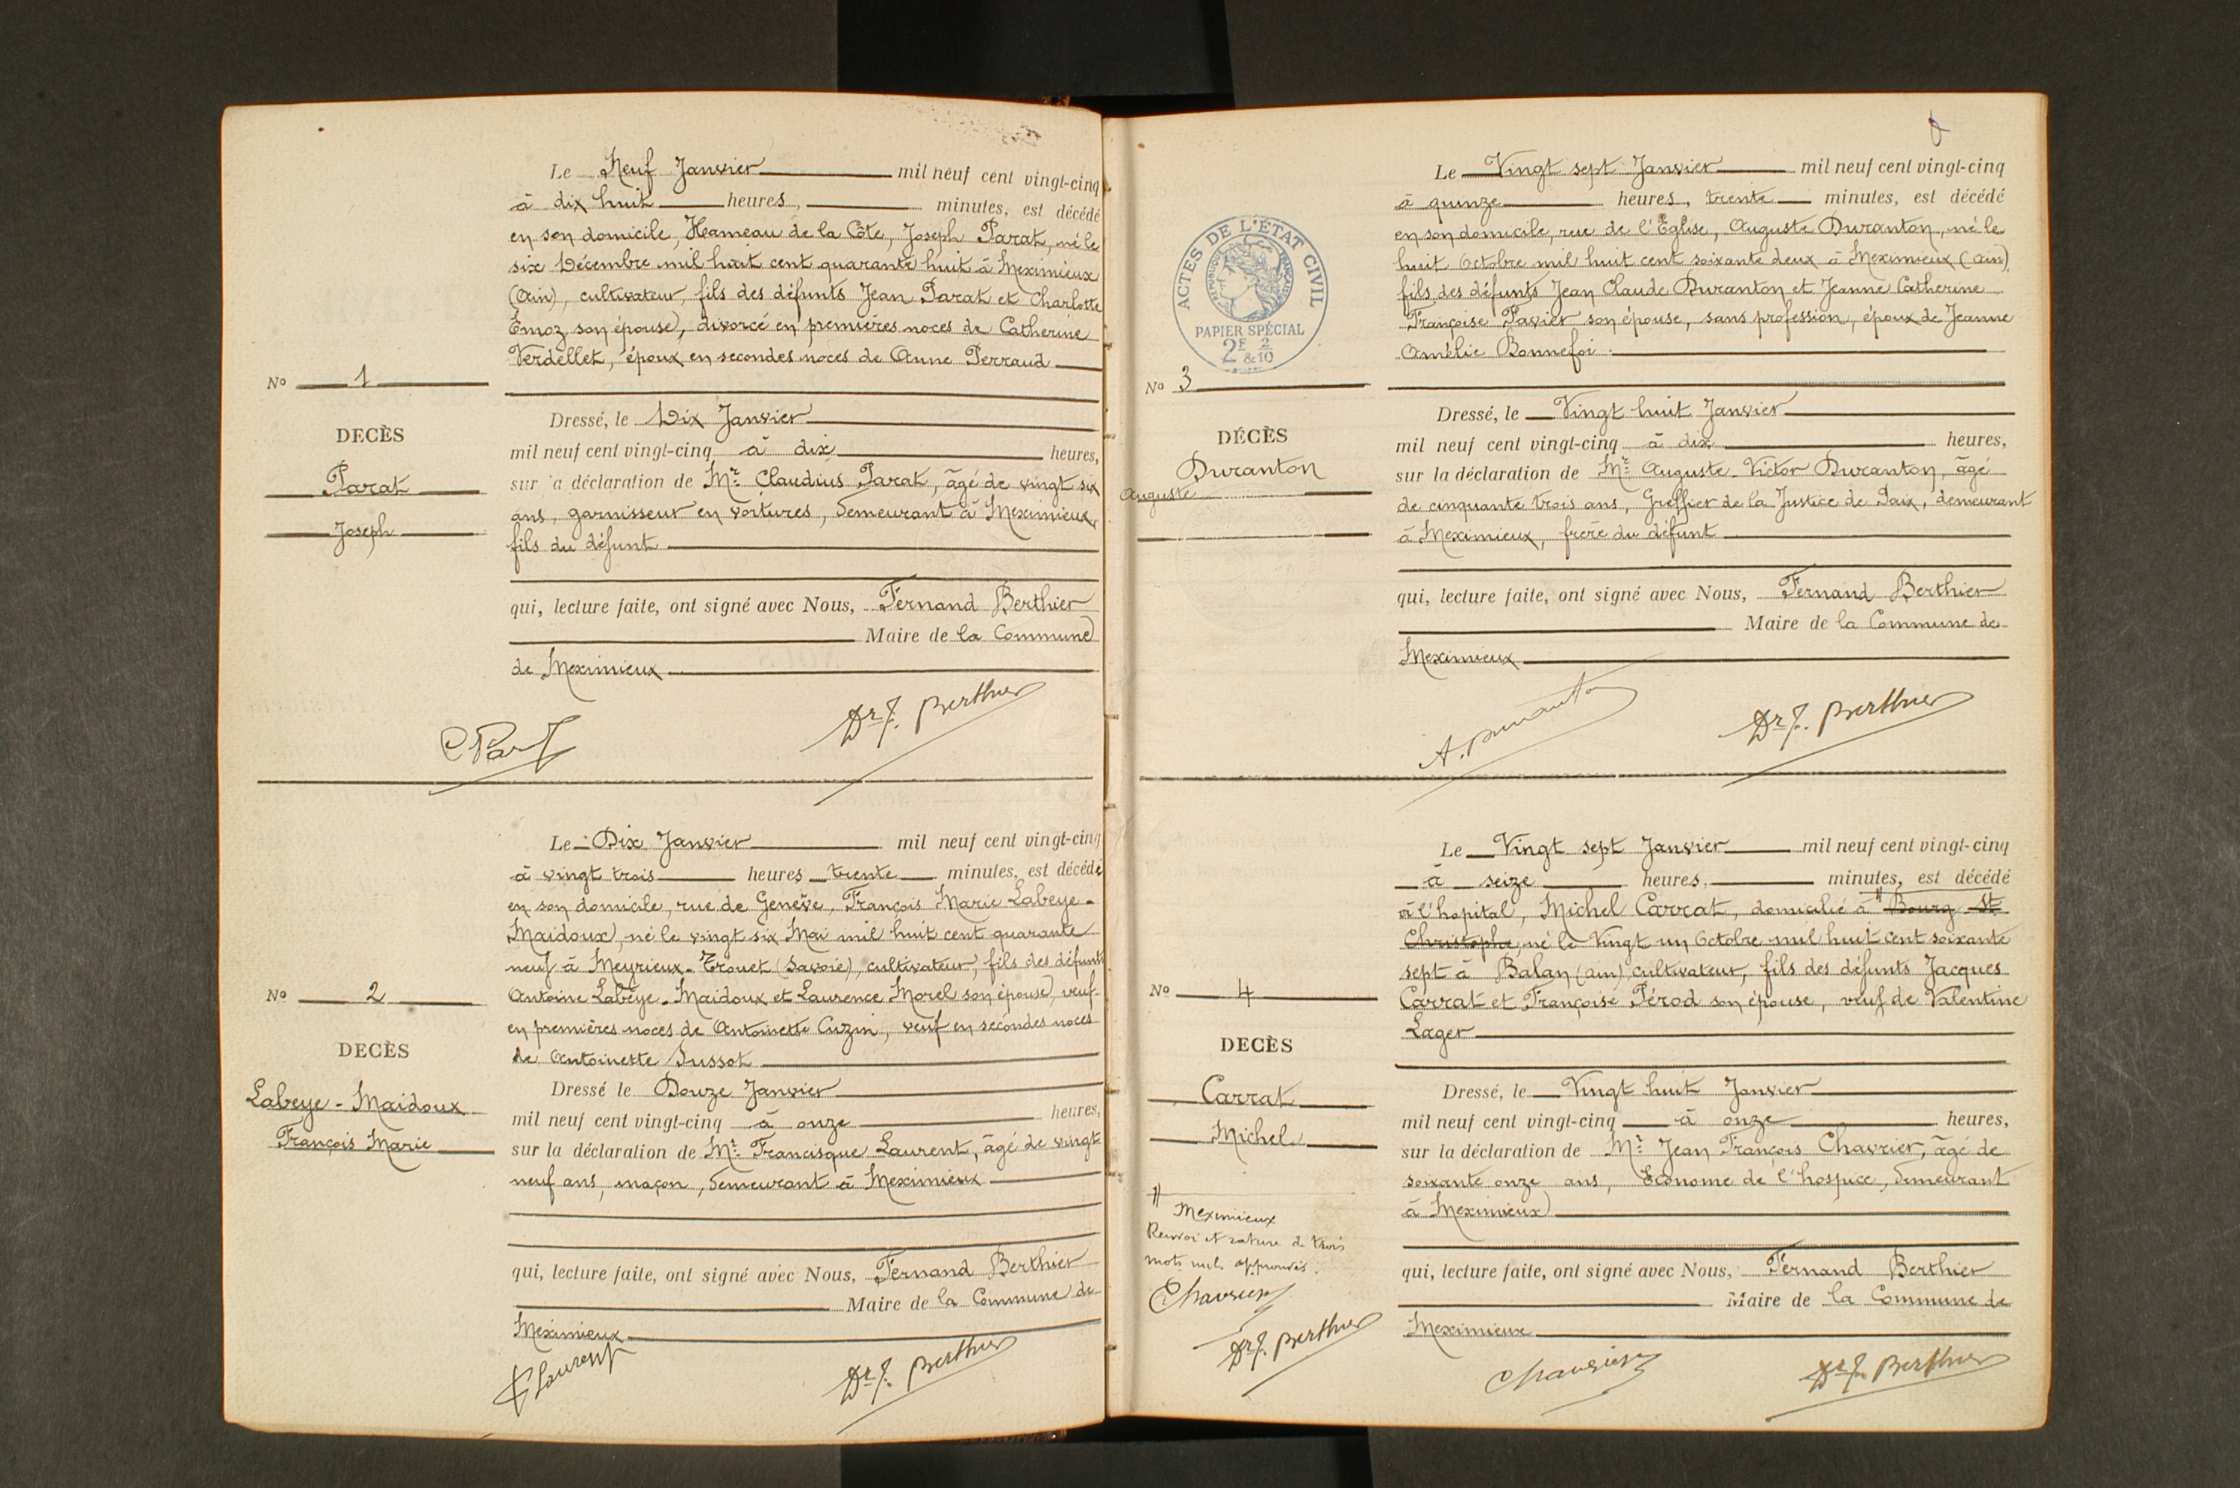 Le Neuf Janvier mil neuf cent vingt-cinq
à dix huit heures, minutes, est décédé
en son domicile, Hameau de la Côte, Joseph Parat, né le
six Décembre mil huit cent quarante huit à Meximieux
(Ain), cultivateur, fils des défunts Jean Parat et Charlotte
Émoz son épouse, divorcé en premières noces de Catherine
Verdellet, époux en secondes noces de Anne Perraud
No 1
DECÈS
Parat
Joseph
Dressé, le Dix Janvier
mil neuf cent vingt-cinq à dix heures,
sur la déclaration de Mr Claudius Parat, âgé de vingt six
ans, garnisseur en voitures, demeurant à Meximieux,
fils du défunt
qui, lecture faite, ont signé avec Nous, Fernand Berthier
Maire de la Commune
de Meximieux
C Parat
Dr F. Berthier
Le Dix Janvier mil neuf cent vingt-cinq
à vingt trois heures trente minutes, est décédé
en son domicile, rue de Genève, François Marie Labeye-
Maidoux, né le vingt six Mai mil huit cent quarante
neuf à Meyrieux-Trouet (Savoie), cultivateur, fils des défunts
Antoine Labeye-Maidoux et Laurence Morel son épouse, veuf
en premières noces de Antoinette Cuzin, veuf en secondes noces
de Antoinette Jussot
No 2
DECÈS
Labeye-Maidoux
François Marie
Dressé le Douze Janvier
mil neuf cent vingt-cinq à onze heures,
sur la déclaration de Mr Francisque Laurent, âgé de vingt
neuf ans, maçon, demeurant à Meximieux
qui, lecture faite, ont signé avec Nous, Fernand Berthier
Maire de la Commune de
Meximieux
F Laurent
Dr F. Berthier
Le Vingt sept Janvier mil neuf cent vingt-cinq
à quinze heures, trente minutes, est décédé
en son domicile, rue de l'Église, Auguste Duranton, né le
huit Octobre mil huit cent soixante deux à Meximieux (Ain),
fils des défunts Jean Claude Duranton et Jeanne Catherine
Françoise Favier son épouse, sans profession, époux de Jeanne
Amélie Bonnefoi.
ACTES DE L'ÉTAT CIVIL
RÉPUBLIQUE FRANÇAISE
PAPIER SPÉCIAL
2F 2
&10
No 3
DÉCÈS
Duranton
Auguste
Dressé, le Vingt huit Janvier
mil neuf cent vingt-cinq à dix heures,
sur la déclaration de Mr Auguste-Victor Duranton, âgé
de cinquante trois ans, Greffier de la Justice de Paix, demeurant
à Meximieux, frère du défunt
qui, lecture faite, ont signé avec Nous, Fernand Berthier
Maire de la Commune de
Meximieux
A. Duranton
Dr F. Berthier
Le Vingt sept Janvier mil neuf cent vingt-cinq
à seize heures, minutes, est décédé
à l'hopital, Michel Carrat, domicilié à Bourg St
Christophe, né le Vingt un Octobre mil huit cent soixante
sept à Balan (Ain) cultivateur, fils des défunts Jacques
Carrat et Françoise Pérod son épouse, veuf de Valentine
Lager
No 4
DECÈS
Carrat
Michel
Meximieux
Renvoi et rature de trois
mots nuls approuvés.
Chavrier
Dr F. Berthier
Dressé, le Vingt huit Janvier
mil neuf cent vingt-cinq à onze heures,
sur la déclaration de Mr Jean François Chavrier, âgé de
soixante onze ans, Econome de l'hospice, demeurant
à Meximieux
qui, lecture faite, ont signé avec Nous, Fernand Berthier
Maire de la Commune de
Meximieux
Chavrier
Dr F. Berthier